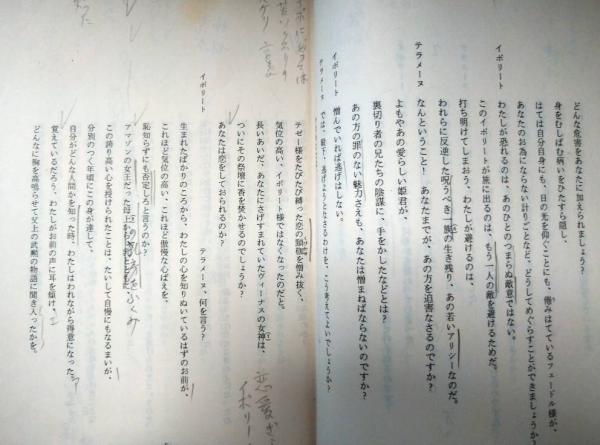 どんな危害をあなたに加えられましょう?
身をむしばむ病いをひたすら隠し、
はては自分自身にも、日の光を仰ぐことにも、倦みはてているフェードル様が、
あなたのお為にならない計りごとなど、どうしてめぐらすことができましょうか?
イポリート
わたしが恐れるのは、あのひとのつまらぬ敵意ではない。
このイポリートが旅に出るのは、もう一人の敵を避けるためだ。
打ち明けてしまおう、わたしが避けるのは、
われらに反逆した呪うべき一族の生き残り、あの若いアリシーなのだ。
テラメーヌ
なんということ! あなたまでが、あの方を迫害なさるのですか?
よもやあの愛らしい姫君が、
裏切り者の兄たちの陰謀に、手をかしたなどとは?
あの方の罪のない魅力さえも、あなたは憎まねばならないのですか?
イポリート
憎んでいれば逃げはしない。
テラメーヌ
では、殿下、逃げようとなさるわけを、こう考えてよいでしょうか?
テゼー様をたびたび縛った恋の頸軛を憎み抜く、
気位の高い、イポリート様ではなくなったのだと。
長いあいだ、あなたにさげすまれていたヴィーナスの女神は、
ついにその祭壇に香を焚かせるのでしょうか?
あなたは恋をしておられるのか?
イポリート
テラメーヌ、何を言う?
生まれたばかりのころから、わたしの心を知りぬいているはずのお前が、
これほど気位の高い、これほど傲慢な心ばえを、
恥知らずにも否定しろと言うのか?
アマゾンの女王だった母
この誇り高い心を授けられたことは、たいして自慢にもなるまいが、
分別のつく年頃にこの身が達して、
自分がどんな人間かを知った時、わたしはわれながら得意になった。
覚えているだろう、わたしがお前の声に耳を傾け、
どんなに胸を高鳴らせて父上の武勲の物語に聞き入ったかを。
恋愛
イポリー